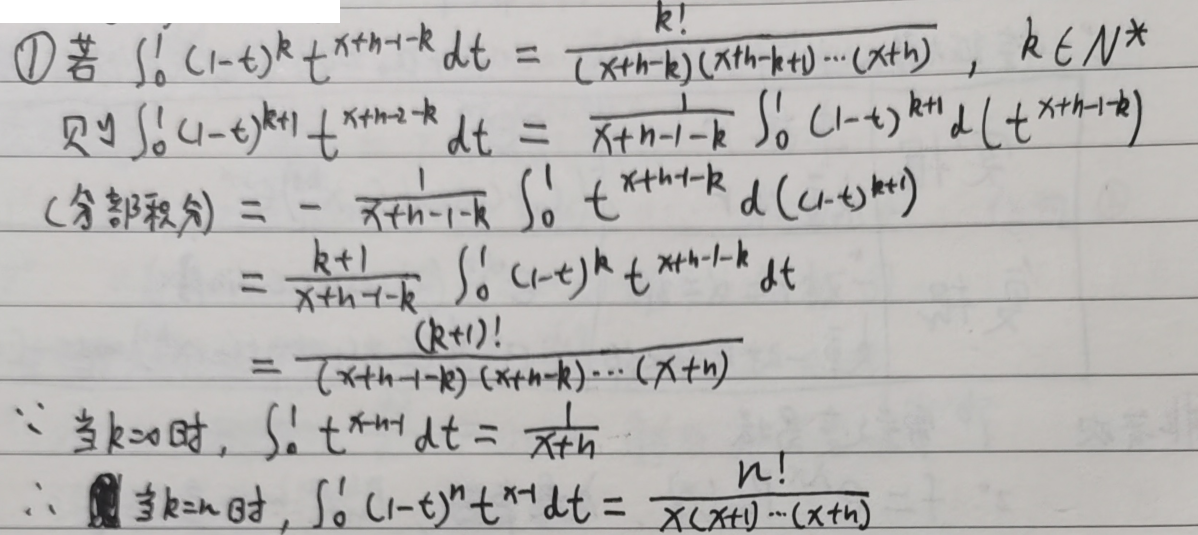 ①若 ∫₀¹ (1-t)^k t^{x+n-1-k} dt = k! / ((x+n-k)(x+n-k+1)···(x+n)) , k∈N*
则 ∫₀¹ (1-t)^{k+1} t^{x+n-2-k} dt = 1/(x+n-1-k) ∫₀¹ (1-t)^{k+1} d(t^{x+n-1-k})
(分部积分) = - 1/(x+n-1-k) ∫₀¹ t^{x+n-1-k} d((1-t)^{k+1})
= (k+1)/(x+n-1-k) ∫₀¹ (1-t)^k t^{x+n-1-k} dt
= (k+1)! / ((x+n-1-k)(x+n-k)···(x+n))
∵ 当k=0时, ∫₀¹ t^{x-n-1} dt = 1/(x+n)
∴ 当k=n时, ∫₀¹ (1-t)^n t^{x-1} dt = n! / (x(x+1)···(x+n))